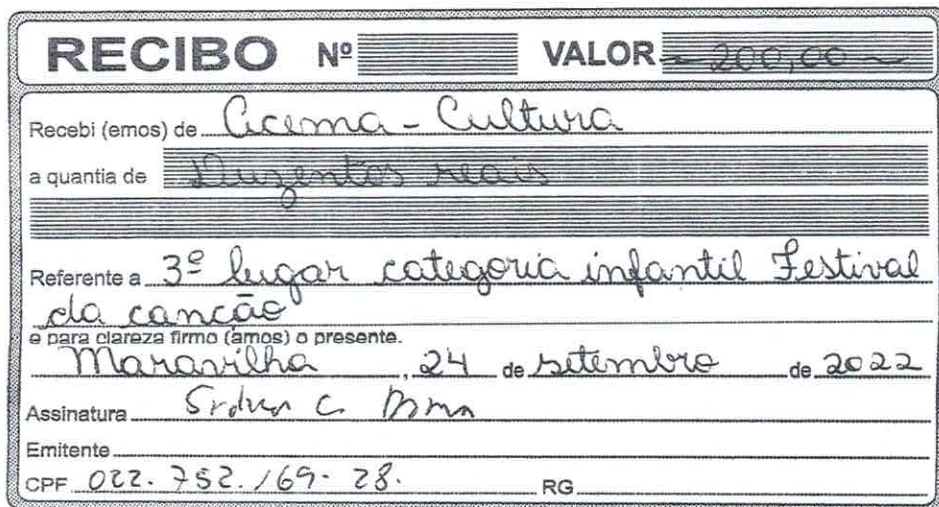 RECIBO Nº VALOR ~ 200,00 ~
Recebi (emos) de Acema - Cultura
a quantia de Duzentos reais
Referente a 3º lugar categoria infantil Festival
da canção
e para clareza firmo (amos) o presente.
Maravilha, 24 de setembro de 2022
Assinatura
Emitente
CPF 022.752.169-28. RG